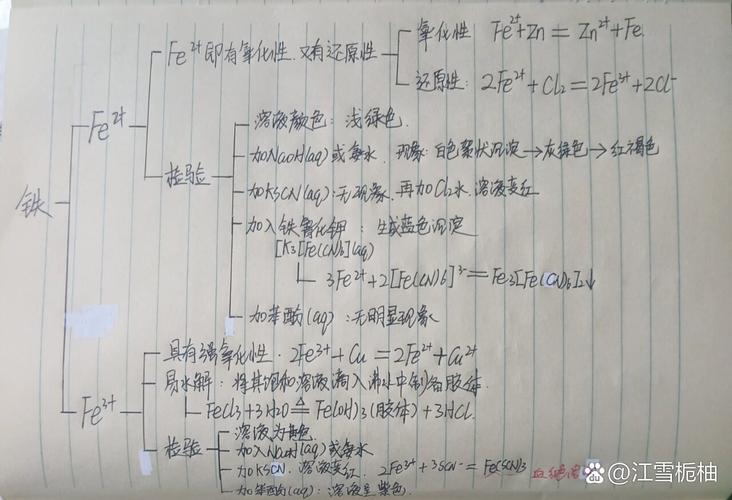 Fe²⁺即有氧化性.又有还原性
氧化性 Fe²⁺+Zn = Zn²⁺+Fe.
还原性: 2Fe²⁺+Cl₂=2Fe³⁺+2Cl⁻
铁
Fe²⁺
检验
溶液颜色: 浅绿色.
加NaOH(aq)或氨水. 现象: 白色絮状沉淀→灰绿色→红褐色
加KSCN(aq):无现象,再加Cl₂水.溶液变红
加入铁氰化钾: 生成蓝色沉淀
[K₃[Fe(CN)₆](aq)
3Fe²⁺+2[Fe(CN)₆]³⁻=Fe₃[Fe(CN)₆]₂↓
加苯酚(aq):无明显现象
Fe³⁺
具有强氧化性. 2Fe³⁺+Cu=2Fe²⁺+Cu²⁺
易水解: 将其饱和溶液滴入沸水中制备胶体.
FeCl₃+3H₂O≜Fe(OH)₃(胶体)+3HCl.
检验
溶液为黄色.
加入NaOH(aq)或氨水
加KSCN.溶液变红. 2Fe³⁺+3SCN⁻=Fe(SCN)₃
加苯酚(aq):溶液呈紫色.
江雪栀柚